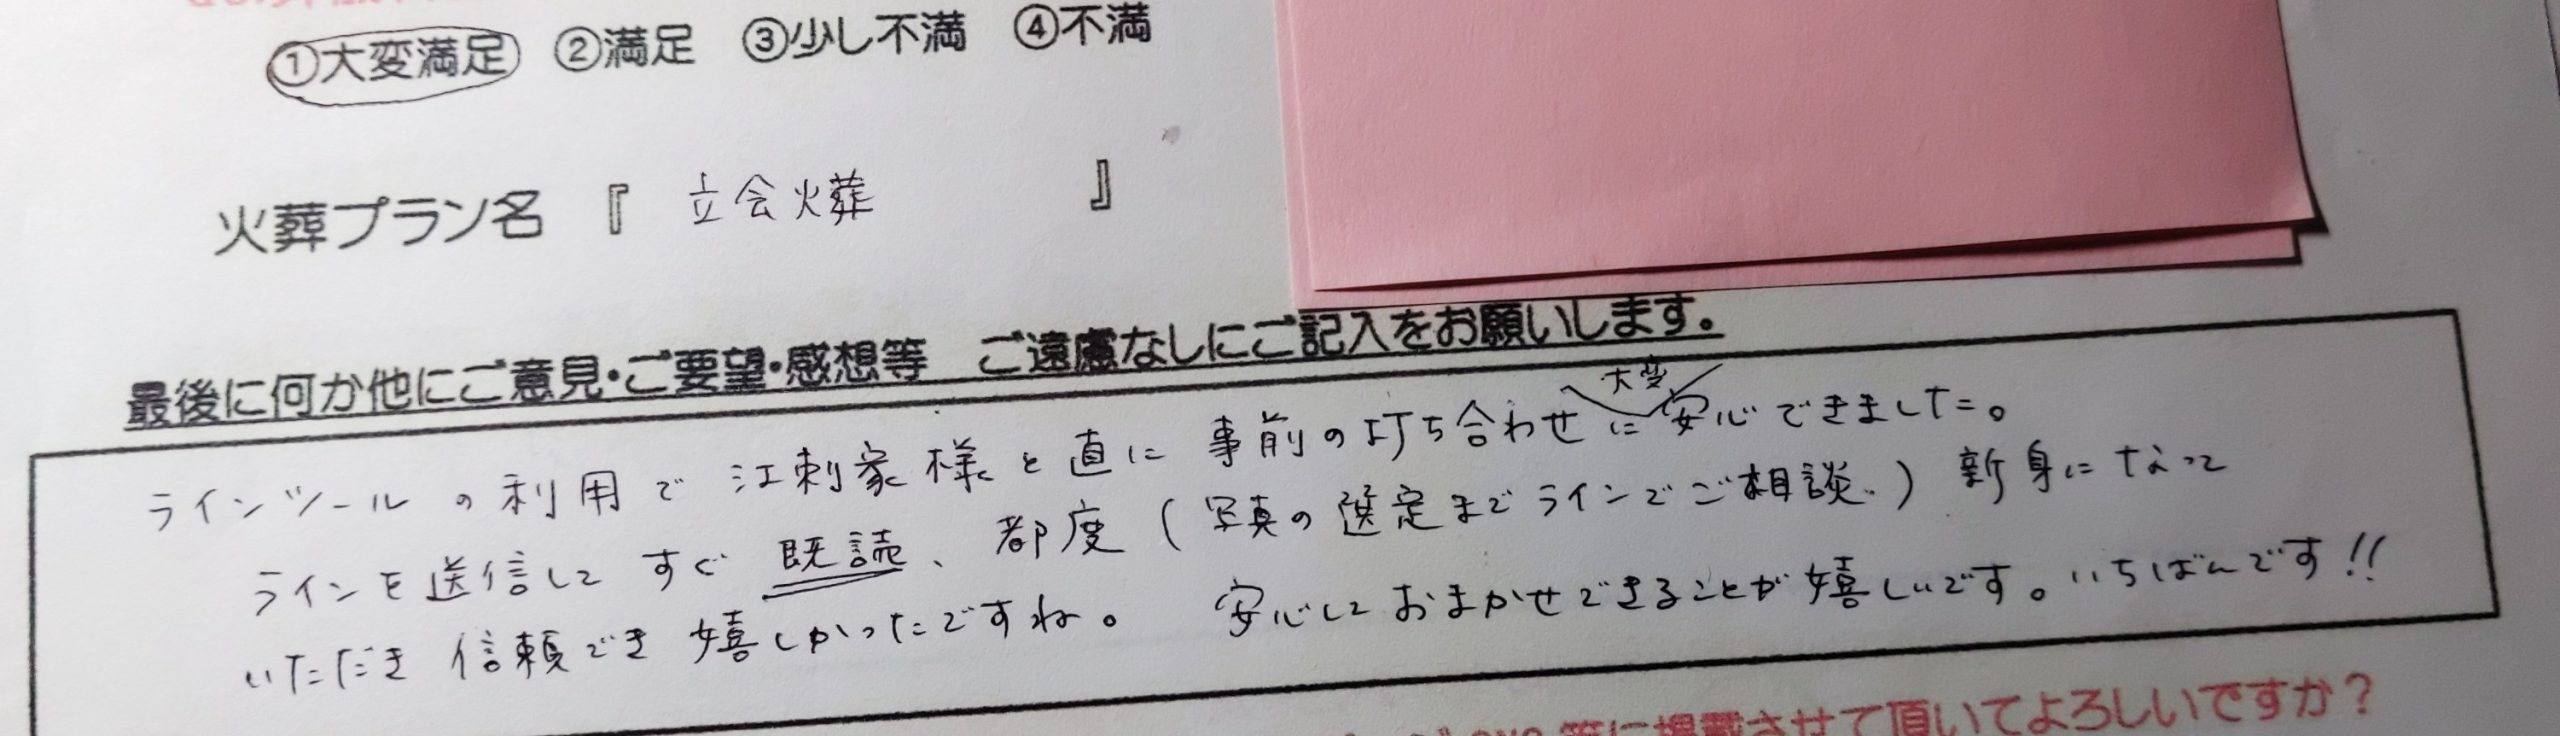 ①大変満足 ②満足 ③少し不満 ④不満
火葬プラン名 『 立会火葬 』
最後に何か他にご意見・ご要望・感想等 ご遠慮なしにご記入をお願いします。
大変
ラインツールの利用で江刺家様と直に事前の打ち合わせに安心できました。
ラインを送信してすぐ既読、都度(写真の選定までラインでご相談。)新身になって
いただき信頼でき嬉しかったですね。 安心しておまかせできることが嬉しいです。いちばんです!!
等に掲載させて頂いてよろしいですか?